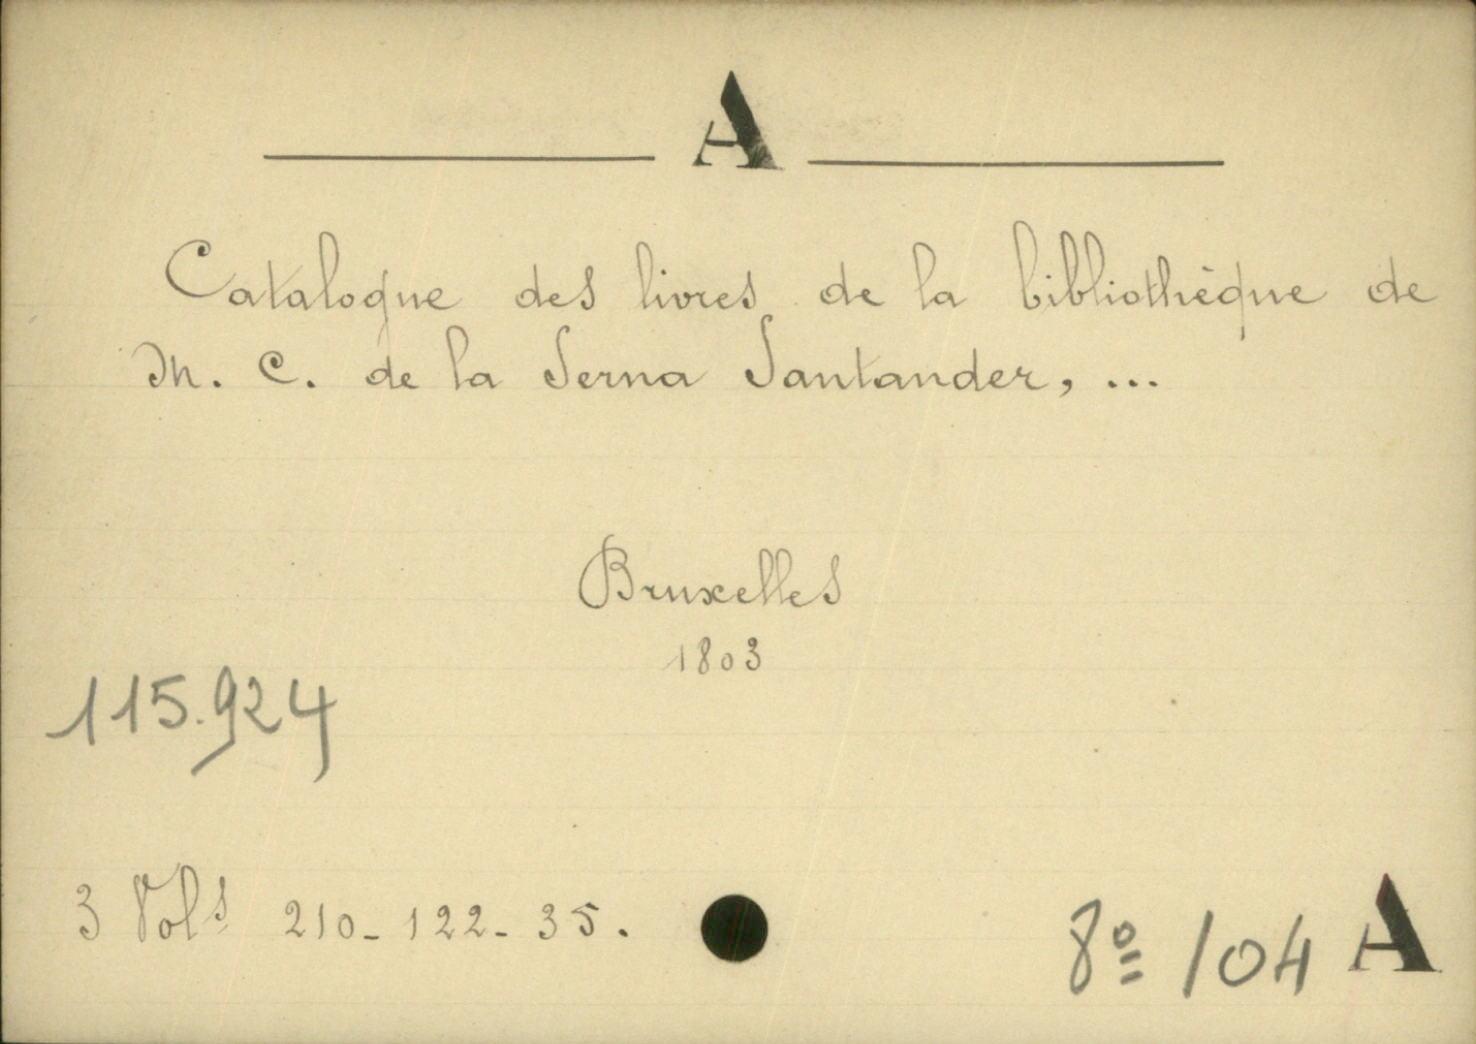 A
Catalogue des livres de la bibliothèque de
M. C. de la Serna Santander, ...
Bruxelles
1803
115.924
3 Vols 210-122-35.
8º 104 A